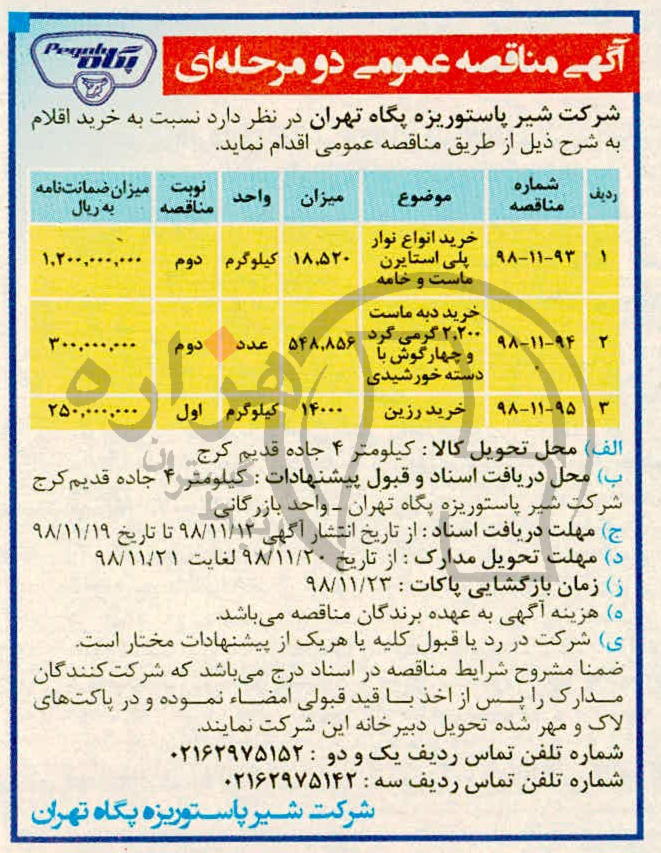 Pegah
پگاه
آگهی مناقصه عمومی دو مرحله‌ای
شرکت شیر پاستوریزه پگاه تهران در نظر دارد نسبت به خرید اقلام
به شرح ذیل از طریق مناقصه عمومی اقدام نماید.
ردیف | شماره مناقصه | موضوع | میزان | واحد | نوبت مناقصه | میزان ضمانت‌نامه به ریال
۱ | ۹۸-۱۱-۹۳ | خرید انواع نوار پلی استایرن ماست و خامه | ۱۸,۵۲۰ | کیلوگرم | دوم | ۱,۲۰۰,۰۰۰,۰۰۰
۲ | ۹۸-۱۱-۹۴ | خرید دبه ماست ۲,۲۰۰ گرمی گرد و چهارگوش با دسته خورشیدی | ۵۴۸,۸۵۶ | عدد | دوم | ۳۰۰,۰۰۰,۰۰۰
۳ | ۹۸-۱۱-۹۵ | خرید رزین | ۱۴۰۰۰ | کیلوگرم | اول | ۲۵۰,۰۰۰,۰۰۰
الف) محل تحویل کالا : کیلومتر ۴ جاده قدیم کرج
ب) محل دریافت اسناد و قبول پیشنهادات : کیلومتر ۴ جاده قدیم کرج
شرکت شیر پاستوریزه پگاه تهران ـ واحد بازرگانی
ج) مهلت دریافت اسناد : از تاریخ انتشار آگهی ۹۸/۱۱/۱۲ تا تاریخ ۹۸/۱۱/۱۹
د) مهلت تحویل مدارک : از تاریخ ۹۸/۱۱/۲۰ لغایت ۹۸/۱۱/۲۱
ز) زمان بازگشایی پاکات : ۹۸/۱۱/۲۳
ه) هزینه آگهی به عهده برندگان مناقصه می‌باشد.
ی) شرکت در رد یا قبول کلیه یا هریک از پیشنهادات مختار است.
ضمنا مشروح شرایط مناقصه در اسناد درج می‌باشد که شرکت‌کنندگان
مدارک را پس از اخذ با قید قبولی امضاء نموده و در پاکت‌های
لاک و مهر شده تحویل دبیرخانه این شرکت نمایند.
شماره تلفن تماس ردیف یک و دو : ۰۲۱۶۲۹۷۵۱۵۲
شماره تلفن تماس ردیف سه : ۰۲۱۶۲۹۷۵۱۴۲
شرکت شیر پاستوریزه پگاه تهران
هزاره